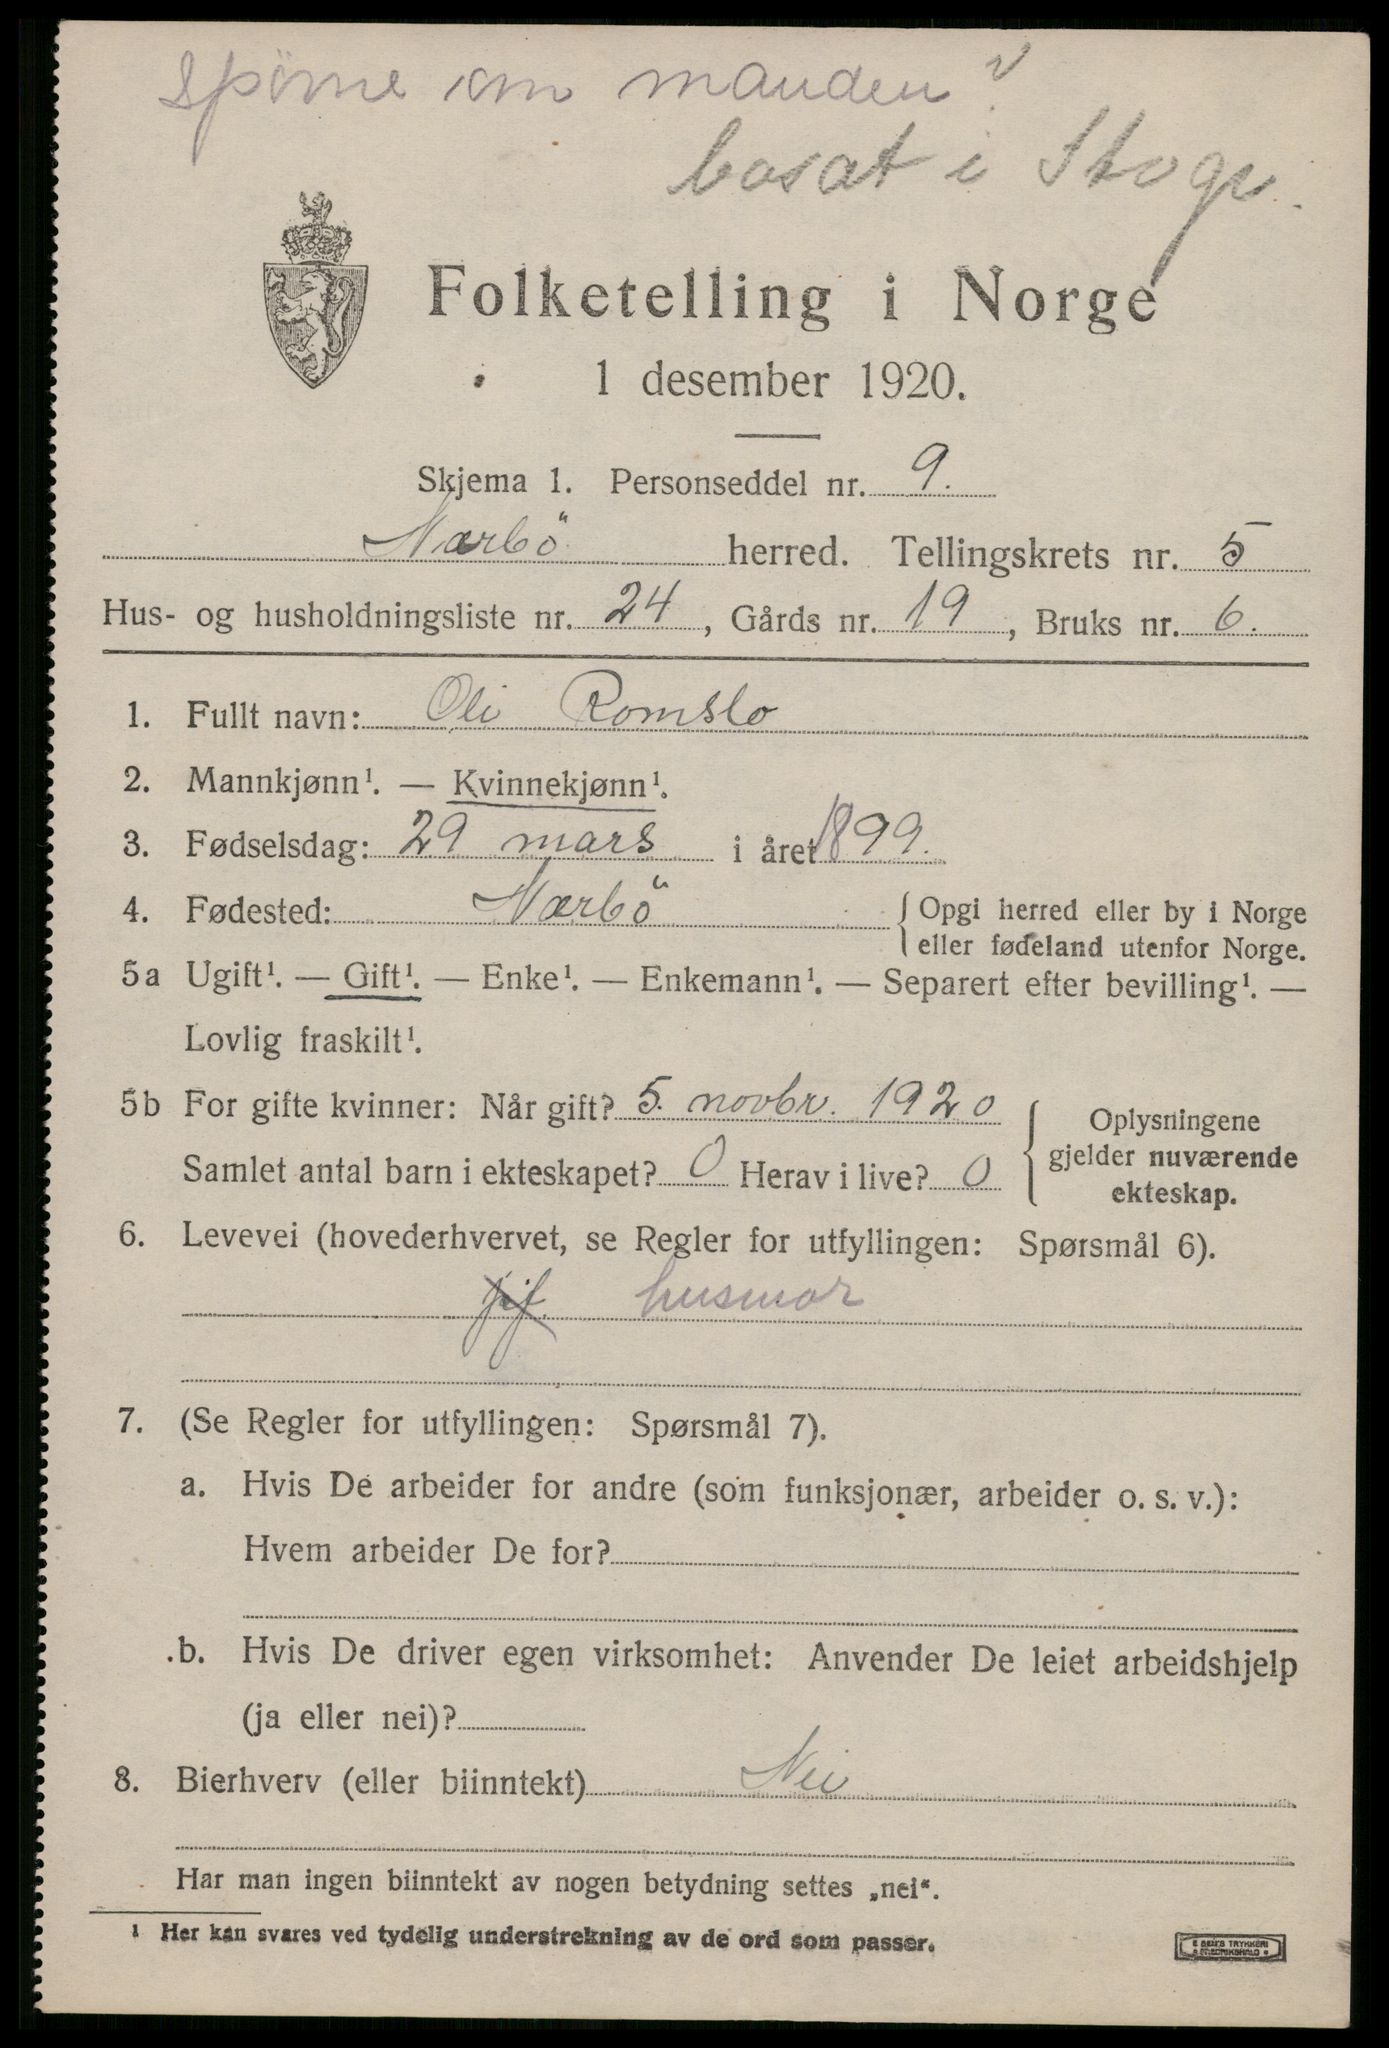 spörre om manden?
bosat i
Folketelling i Norge
1 desember 1920.
Skjema 1. Personseddel nr. 9.
Nærbö herred. Tellingskrets nr. 5
Hus- og husholdningsliste nr. 24, Gårds nr. 19, Bruks nr. 6.
1. Fullt navn: Oli Romslo
2. Mannkjønn¹. — Kvinnekjønn¹.
3. Fødselsdag: 29 mars i året 1899.
4. Fødested: Nærbö { Opgi herred eller by i Norge
eller fødeland utenfor Norge.
5a Ugift¹. — Gift¹. — Enke¹. — Enkemann¹. — Separert efter bevilling¹. —
Lovlig fraskilt¹.
5b For gifte kvinner: Når gift? 5. novbr. 1920
Samlet antal barn i ekteskapet? 0 Herav i live? 0
Oplysningene
gjelder nuværende
ekteskap.
6. Levevei (hovederhvervet, se Regler for utfyllingen: Spørsmål 6).
husmor
7. (Se Regler for utfyllingen: Spørsmål 7).
a. Hvis De arbeider for andre (som funksjonær, arbeider o. s. v.):
Hvem arbeider De for?
b. Hvis De driver egen virksomhet: Anvender De leiet arbeidshjelp
(ja eller nei)?
8. Bierhverv (eller biinntekt) Nei
Har man ingen biinntekt av nogen betydning settes „nei“.
¹ Her kan svares ved tydelig understrekning av de ord som passer.